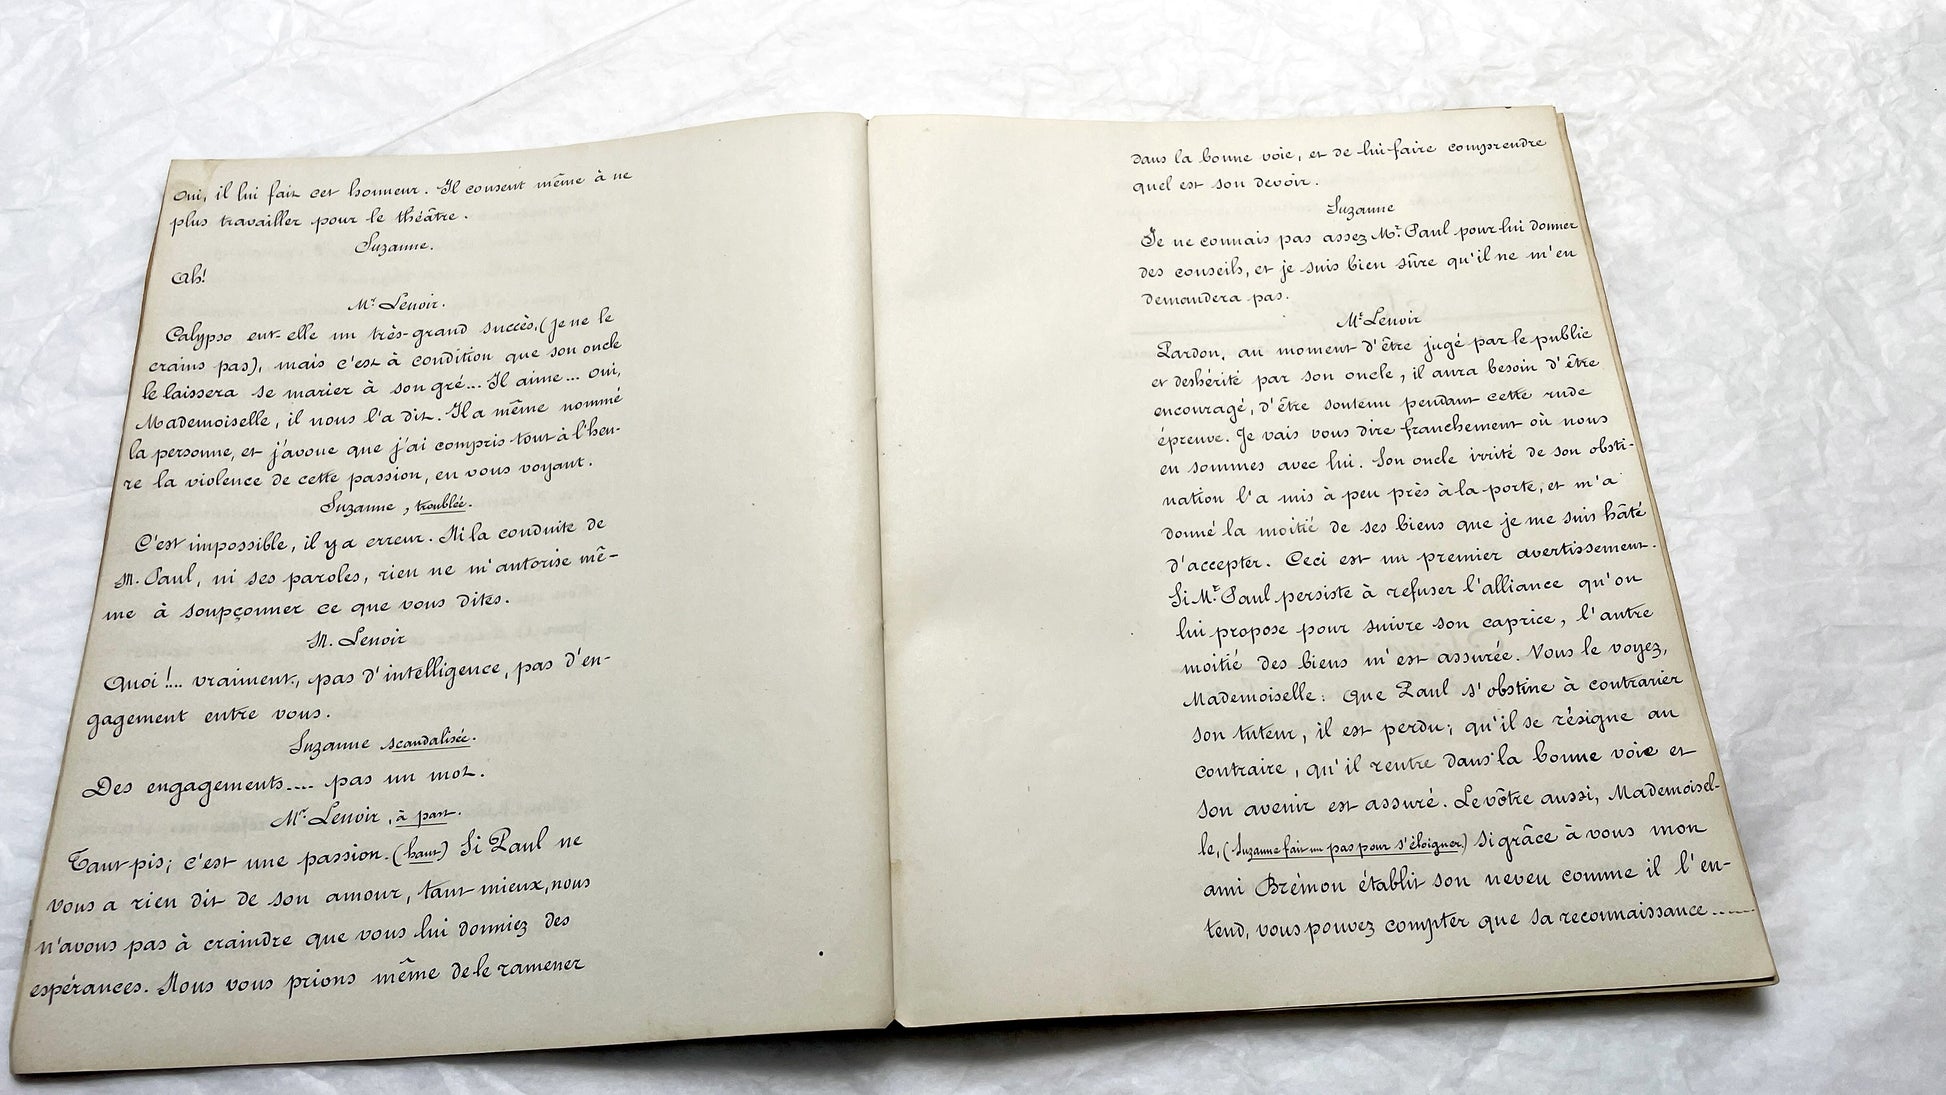 Oui, il lui fait cet honneur. Il consent même à ne
plus travailler pour le théâtre.
Suzanne.
Ah!
Mr. Lenoir.
Calypso eut-elle un très-grand succès, (je ne le
crains pas), mais c'est à condition que son oncle
le laissera se marier à son gré... Il aime... oui,
Mademoiselle, il nous l'a dit. Il a même nommé
la personne, et j'avoue que j'ai compris tout à l'heu-
re la violence de cette passion, en vous voyant.
Suzanne, troublée.
C'est impossible, il y a erreur. Ni la conduite de
M. Paul, ni ses paroles, rien ne m'autorise mê-
me à soupçonner ce que vous dites.
M. Lenoir
Quoi!... vraiment, pas d'intelligence, pas d'en-
gagement entre vous.
Suzanne scandalisée.
Des engagements.... pas un mot.
Mr. Lenoir, à part.
Tant pis; c'est une passion. (haut) Si Paul ne
vous a rien dit de son amour, tant mieux, nous
n'avons pas à craindre que vous lui donniez des
espérances. Nous vous prions même de le ramener
dans la bonne voie, et de lui faire comprendre
quel est son devoir.
Suzanne
Je ne connais pas assez Mr. Paul pour lui donner
des conseils, et je suis bien sûre qu'il ne m'en
demandera pas.
Mr. Lenoir
Pardon, au moment d'être jugé par le public
et deshérité par son oncle, il aura besoin d'être
encouragé, d'être soutenu pendant cette rude
épreuve. Je vais vous dire franchement où nous
en sommes avec lui. Son oncle irrité de son obsti-
nation l'a mis à peu près à la porte, et m'a
donné la moitié de ses biens que je me suis hâté
d'accepter. Ceci est un premier avertissement.
Si Mr. Paul persiste à refuser l'alliance qu'on
lui propose pour suivre son caprice, l'autre
moitié des biens m'est assurée. Vous le voyez,
Mademoiselle: Que Paul s'obstine à contrarier
son tuteur, il est perdu; qu'il se résigne au
contraire, qu'il rentre dans la bonne voie et
son avenir est assuré. Le vôtre aussi, Mademoisel-
le, (Suzanne fait un pas pour s'éloigner) Si grâce à vous mon
ami Brémon établit son neveu comme il l'en-
tend, vous pouvez compter que sa reconnaissance......